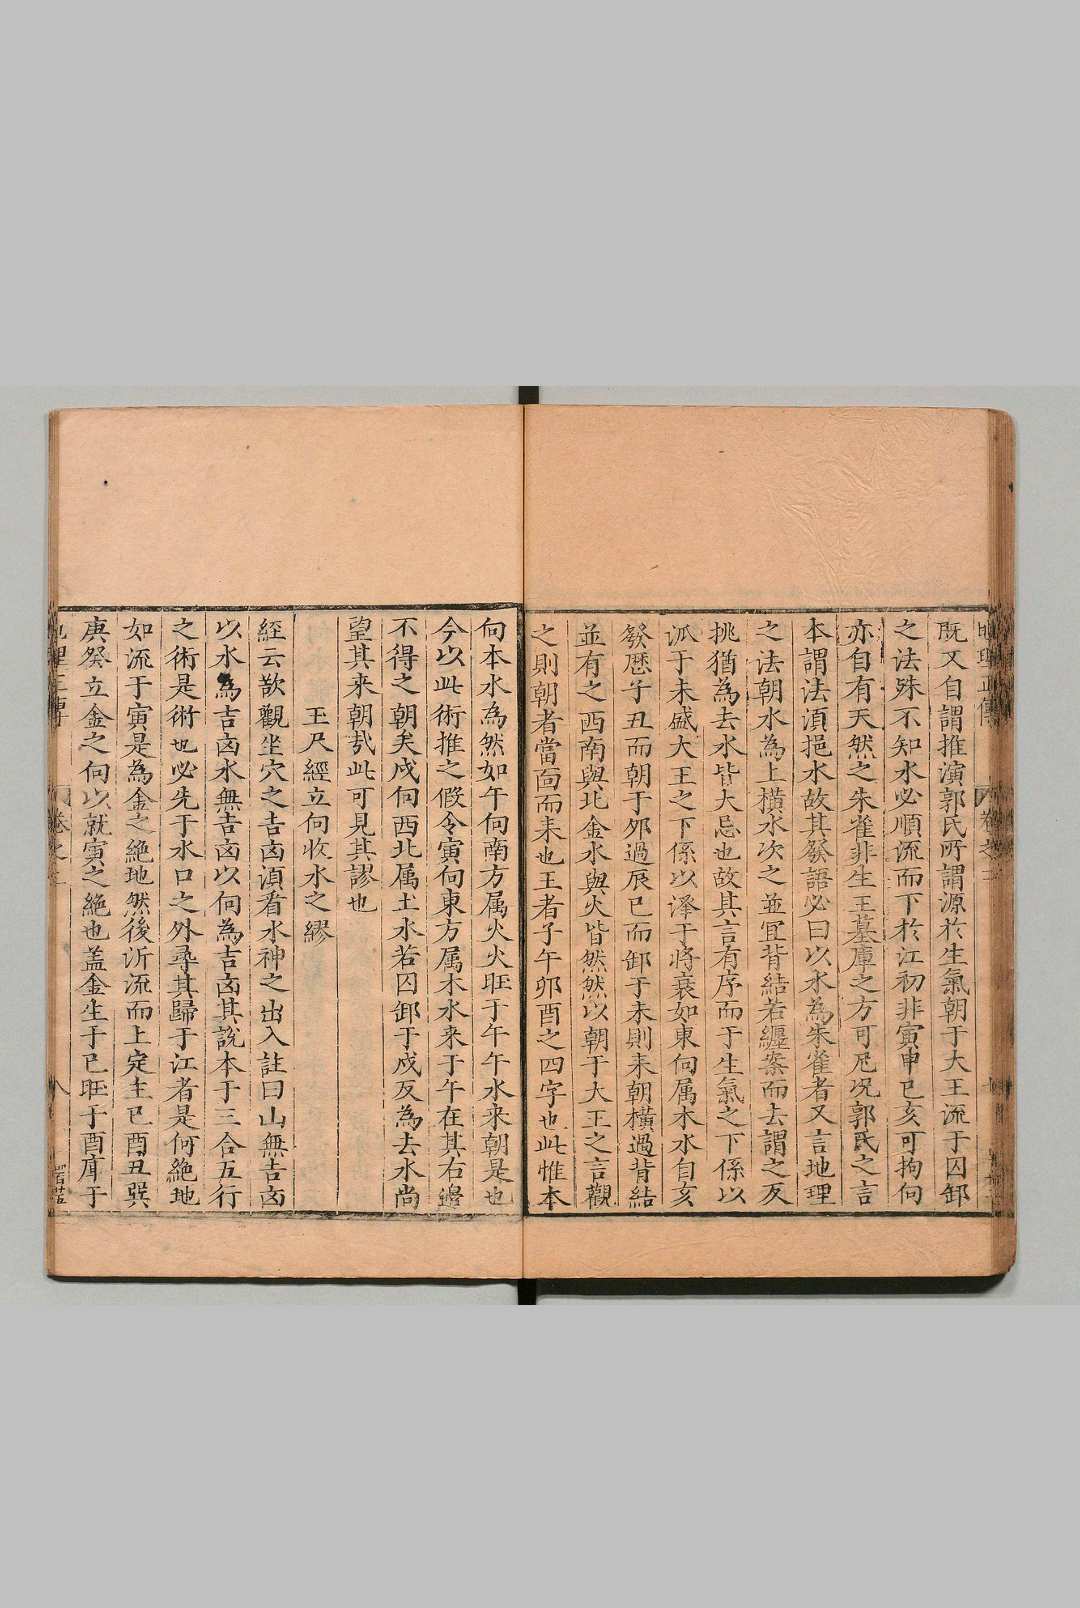 既又自謂推演郭氏所謂源於生氣朝于大王流于囚卸
之法殊不知水必順流而下於江初非寅申巳亥可拘向
亦自有天然之朱雀非生王墓庫之方可尼況郭氏之言
本謂法湏挹水故其發語必曰以水為朱雀者又言地理
之法朝水為上橫水次之並冝背結若纏案而去謂之反
挑猶為去水皆大忌也故其言有序而于生氣之下係以
泒于未盛大王之下係以澤于將衰如東向属木水自亥
發歷子丑而朝于夘過辰巳而卸于未則来朝橫過背結
並有之西南與北金水與火皆然然以朝于大王之言觀
之則朝者當靣而来也王者子午夘酉之四字也此惟本
向本水為然如午向南方属火火旺于午午水来朝是也
今以此術推之假令寅向東方属木水来于午在其右邉
不得之朝矣戍向西北属土水若囚卸于戍反為去水尚
望其来朝㢤此可見其謬也
玉尺經立向收水之繆
經云欲觀坐穴之吉凶湏看水神之出入註曰山無吉凶
以水為吉凶水無吉凶以向為吉凶其說本于三合五行
之術是術也必先于水口之外尋其歸于江者是何絶地
如流于寅是為金之絶地然後泝流而上定主巳酉丑巽
庚癸立金之向以就寅之絶也盖金生于巳旺于酉庫于
卷之
八